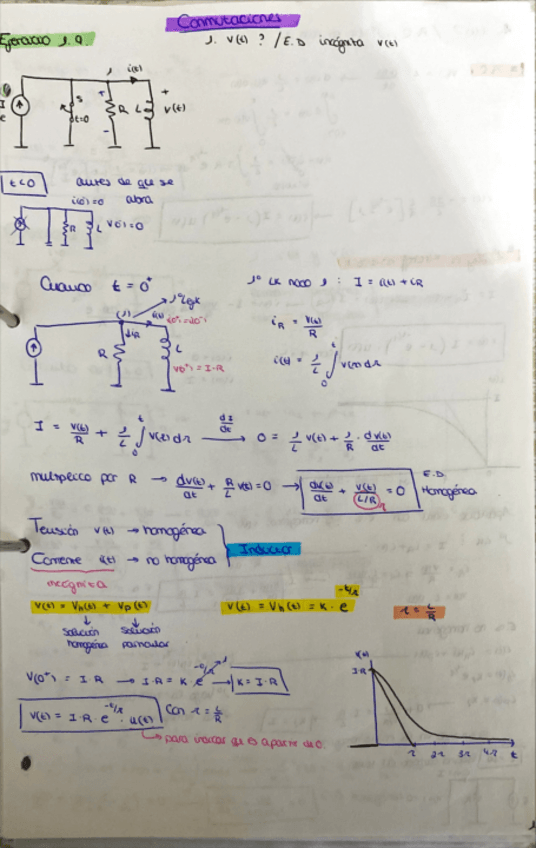 Conmutaciones
Ejercicio 1.a
1. v(t) ? / E.D incógnita v(t)
1 i(t)
I e
s t=0
+ R -
L
+ v(t)
t<0 antes de que se abra
i(0)=0
R L v(0)=0
Cuando t = 0⁺
1º LK nodo 1 : I = i(t) + iR
(1) 1º LK
iR i(t)
R L
v(0⁺) = I·R
iR = v(t)/R
i(t) = 1/L ∫₀ᵗ v(τ) dτ
I = v(t)/R + 1/L ∫₀ᵗ v(τ) dτ → dI/dt 0 = 1/L v(t) + 1/R · dv(t)/dt
multiplico por R → dv(t)/dt + R/L v(t) = 0 → dv(t)/dt + v(t)/(L/R) = 0 E.D. Homogénea
Tensión v(t) → homogénea
Corriente i(t) → no homogénea
Inductor
incógnita
v(t) = Vh(t) + Vp(t)
v(t) = Vh(t) = K · e^(-t/τ)
τ = L/R
solución homogénea
solución particular
V(0⁺) = I·R → I·R = K · e^(-0/τ) 1 → K = I·R
v(t) = I·R · e^(-t/τ) · u(t) con τ = L/R
para indicar que es a partir de 0.
v(t)
I·R
τ 2τ 3τ 4τ t